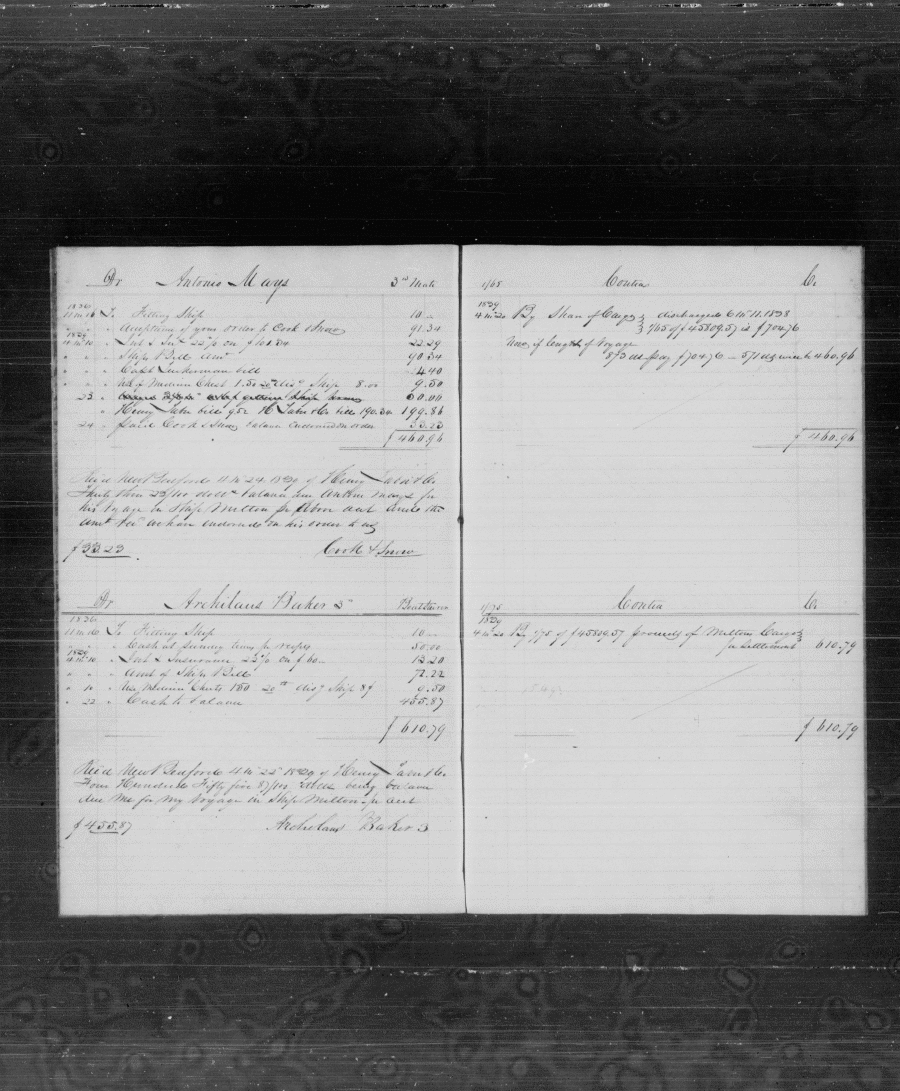 Dr Antonio Mays 3rd Mate
1836
11 m 16 To Fitting Ship 10 —
" " " Acceptance of your order to Cook & Snow 91.34
1839
4 m 10 " Int & Ins 22 % on $101.34 22.29
" " " Ships Bill Amt 90.34
" " " Capt bill 4.40
" " " of Medicine Chest 1.50 Ship 8.00 9.50
23 "
" " Henry Taber bill 9.52 H Taber & Co bill 190.34 199.86
24 " paid Cook & Snow balance endorsed on order 33.23
$ 460.96
Rec'd New Bedford 4 m 24 1839 of Henry Taber & Co
Thirty three 23/100 dolls balance due Antonio Mays for
his Voyage in Ship Milton pr above
amt we have endorsed on his order to us
$33.23 Cook & Snow
1/65 Contra Cr
1839
4 m 20 By Share of Cargo discharged 6 m 11. 1838
1/65 of $45809.57 is $704.76
Now if length of Voyage
873 ds pay $704.76 — 571 460.96
$ 460.96
Dr Archelaus Baker 3d Boatsteerer
1836
11 m 16 To Fitting Ship 10 —
" " " Cash at sundry times pr receipts 50.00
1839
4 m 10 " Int & Insurance 22% on $60— 13.20
" " " Amt of Ships Bill 72.22
" 10 " Use Medicine Chest 1.50 disg Ship 8$ 9.50
" 22 " Cash to balance 455.87
$ 610.79
Rec'd New Bedford 4 m 22 1839 of Henry Taber & Co
Four Hundred Fifty five 87/100 Dolls being balance
due me for my Voyage in Ship Milton pr acct
$455.87 Archelaus Baker 3
1/75 Contra Cr
1839
4 m 20 By 1/75 of $45809.57 proceeds of Miltons Cargo
for Settlement 610.79
$ 610.79